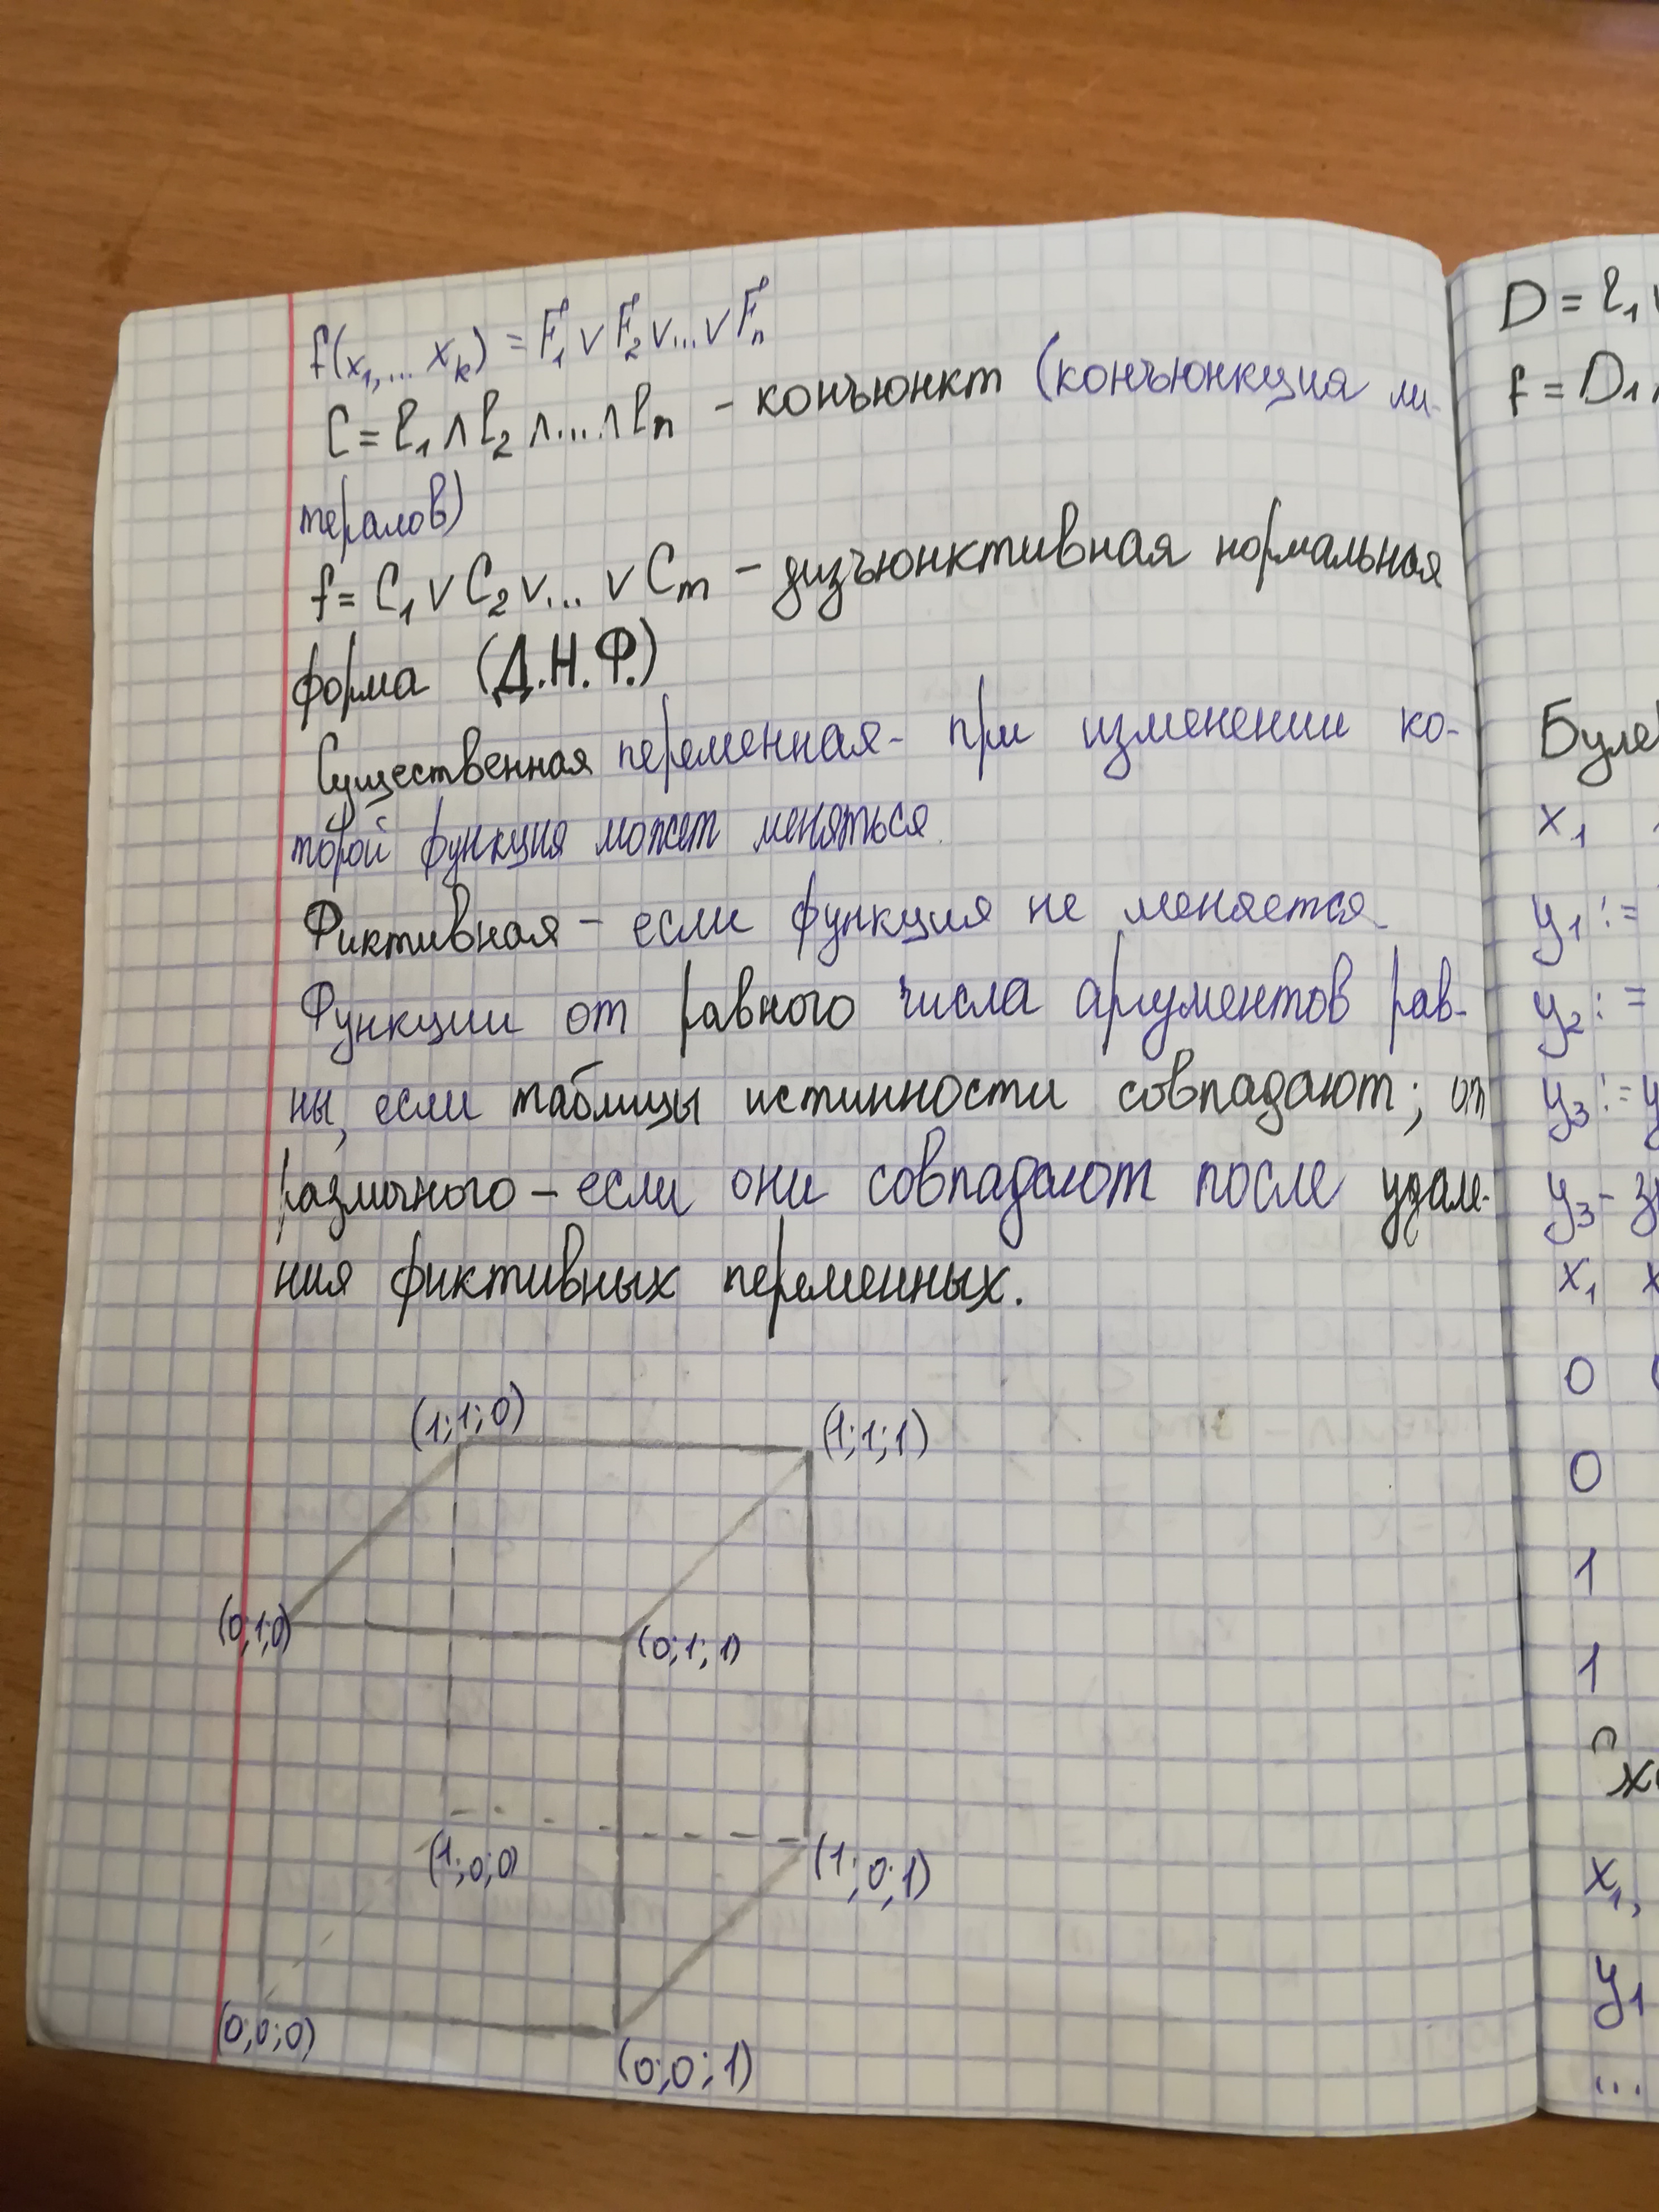 f(x₁,... xₖ) = F₁ ∨ F₂ ∨...∨ Fₙ
C = l₁ ∧ l₂ ∧...∧ lₙ - конъюнкт (конъюнкция ли-
тералов)
f = C₁ ∨ C₂ ∨... ∨ Cₘ - дизъюнктивная нормальная
форма (Д.Н.Ф.)
Существенная переменная - при изменении ко-
торой функция может меняться.
Фиктивная - если функция не меняется.
Функции от равного числа аргументов рав-
ны, если таблицы истинности совпадают; от
различного - если они совпадают после удале-
ния фиктивных переменных.
(1;1;0) (1;1;1)
(0;1;0) (0;1;1)
(1;0;0) (1;0;1)
(0;0;0) (0;0;1)
D = l₁ ∨
f = D₁
Буле
x₁
y₁ :=
y₂ :=
y₃ := y
y₃ -
x₁ x
0
0
1
1
x₁,
y₁
...